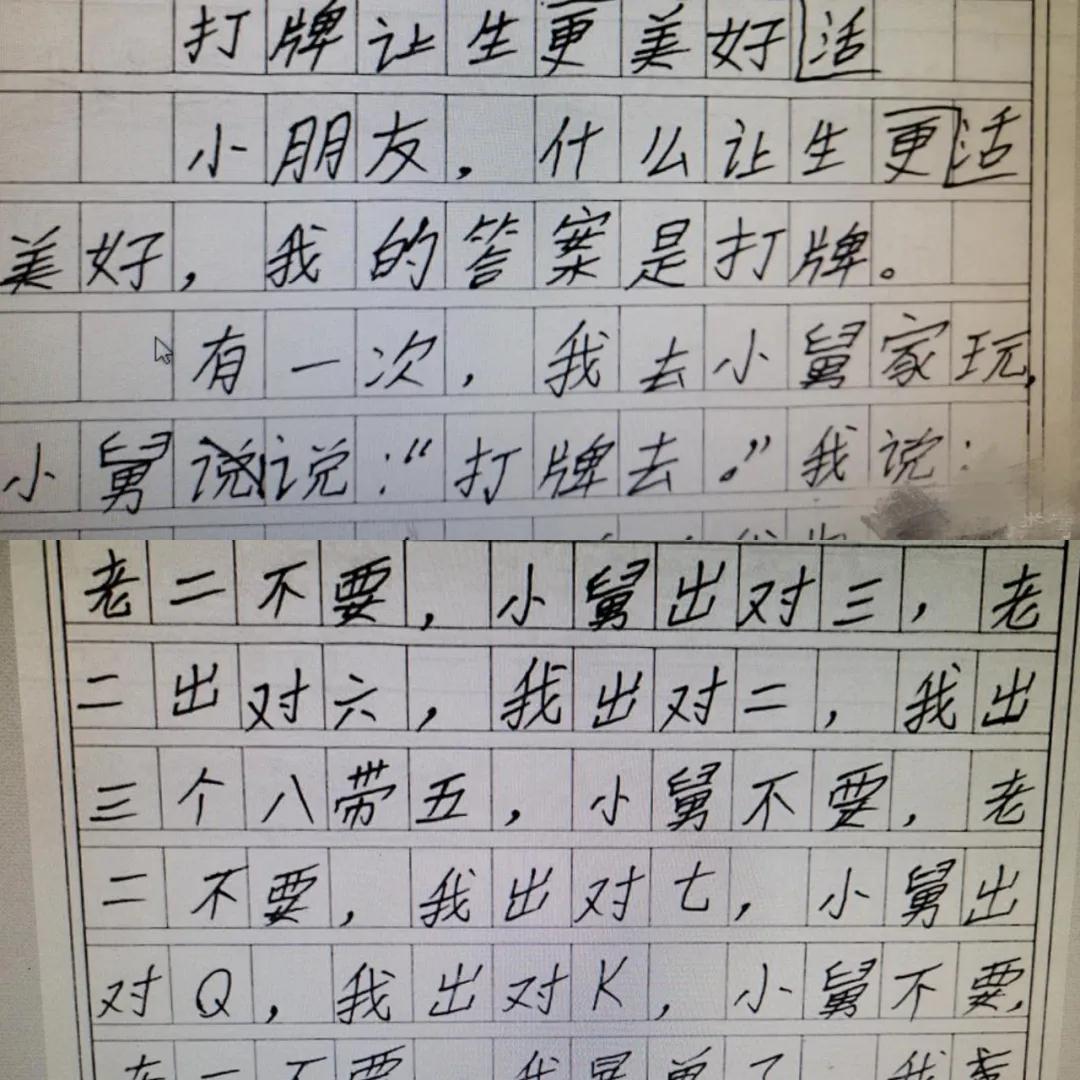 打牌让生更美好活
小朋友，什么让生更活
美好，我的答案是打牌。
有一次，我去小舅家玩，
小舅说说：“打牌去。”我说：
老二不要，小舅出对三，老
二出对六，我出对二，我出
三个八带五，小舅不要，老
二不要，我出对七，小舅出
对Q，我出对K，小舅不要，
老二不要